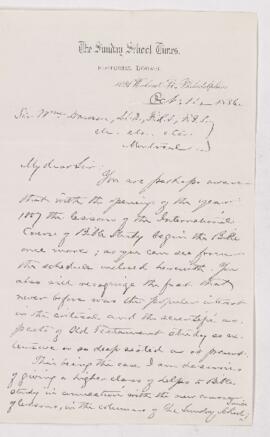 The Sunday School Times.
EDITORIAL ROOMS.
1031 Walnut St. Philadelphia
Oct. 1886.
Sir Wm. Dawson, LL.D., F.R.S., F.G.S.,
etc. etc. etc.
Montreal.
My dear Sir:
You are perhaps aware
that with the opening of the year
1887 the lessons of the International
Course of Bible Study begin the Bible
once more; as you can see from
the schedule enclosed herewith. You
also will recognize the fact that
never before was the popular interest
in the critical and the scientific as-
pects of Old Testament study so ex-
tensive or so deep seated as at present.
This being the case, I am desirous
of giving a higher class of helps to Bible
study in connection with the new series
of lessons, in the columns of The Sunday School